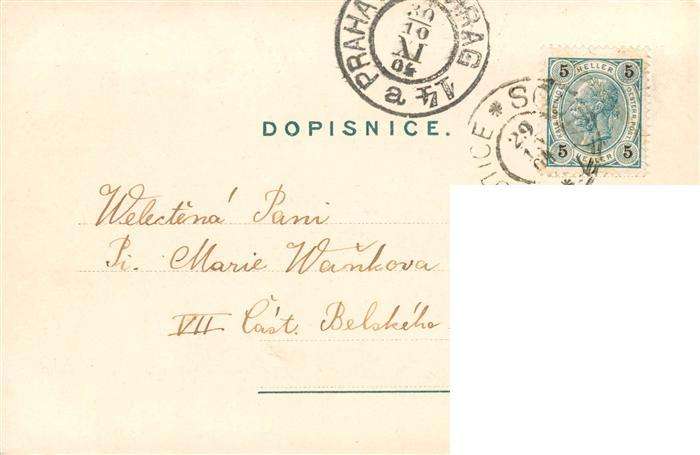 PRAHA PRAG
30
10
XI
04
a 41
5 HELLER 5
5 HELLER 5
DOPISNICE.
29
04
Welectěná Pani
Pi. Marie Waňkova
VII část. Belského